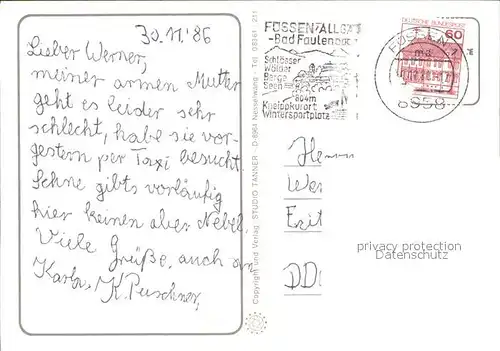 30.11.'86
Lieber Werner,
meiner armen Mutter
geht es leider sehr
schlecht, habe sie vor-
gestern per Taxi besucht.
Schne gibts vorläufig
hier keinen aber Nebel.
Viele Grüße, auch an
Karla, K. Puschner,
Copyright und Verlag STUDIO TANNER - D-8964 Nesselwang - Tel. 08361 - 211
FÜSSEN/ALLGÄU
-Bad Faulenbach
Schlösser
Wälder
Berge
Seen
804m
Kneippkurort
Wintersportplatz
FÜSSEN 1
8958
DEUTSCHE BUNDESPOST
60
Herrn
We
DD
privacy protection
Datenschutz